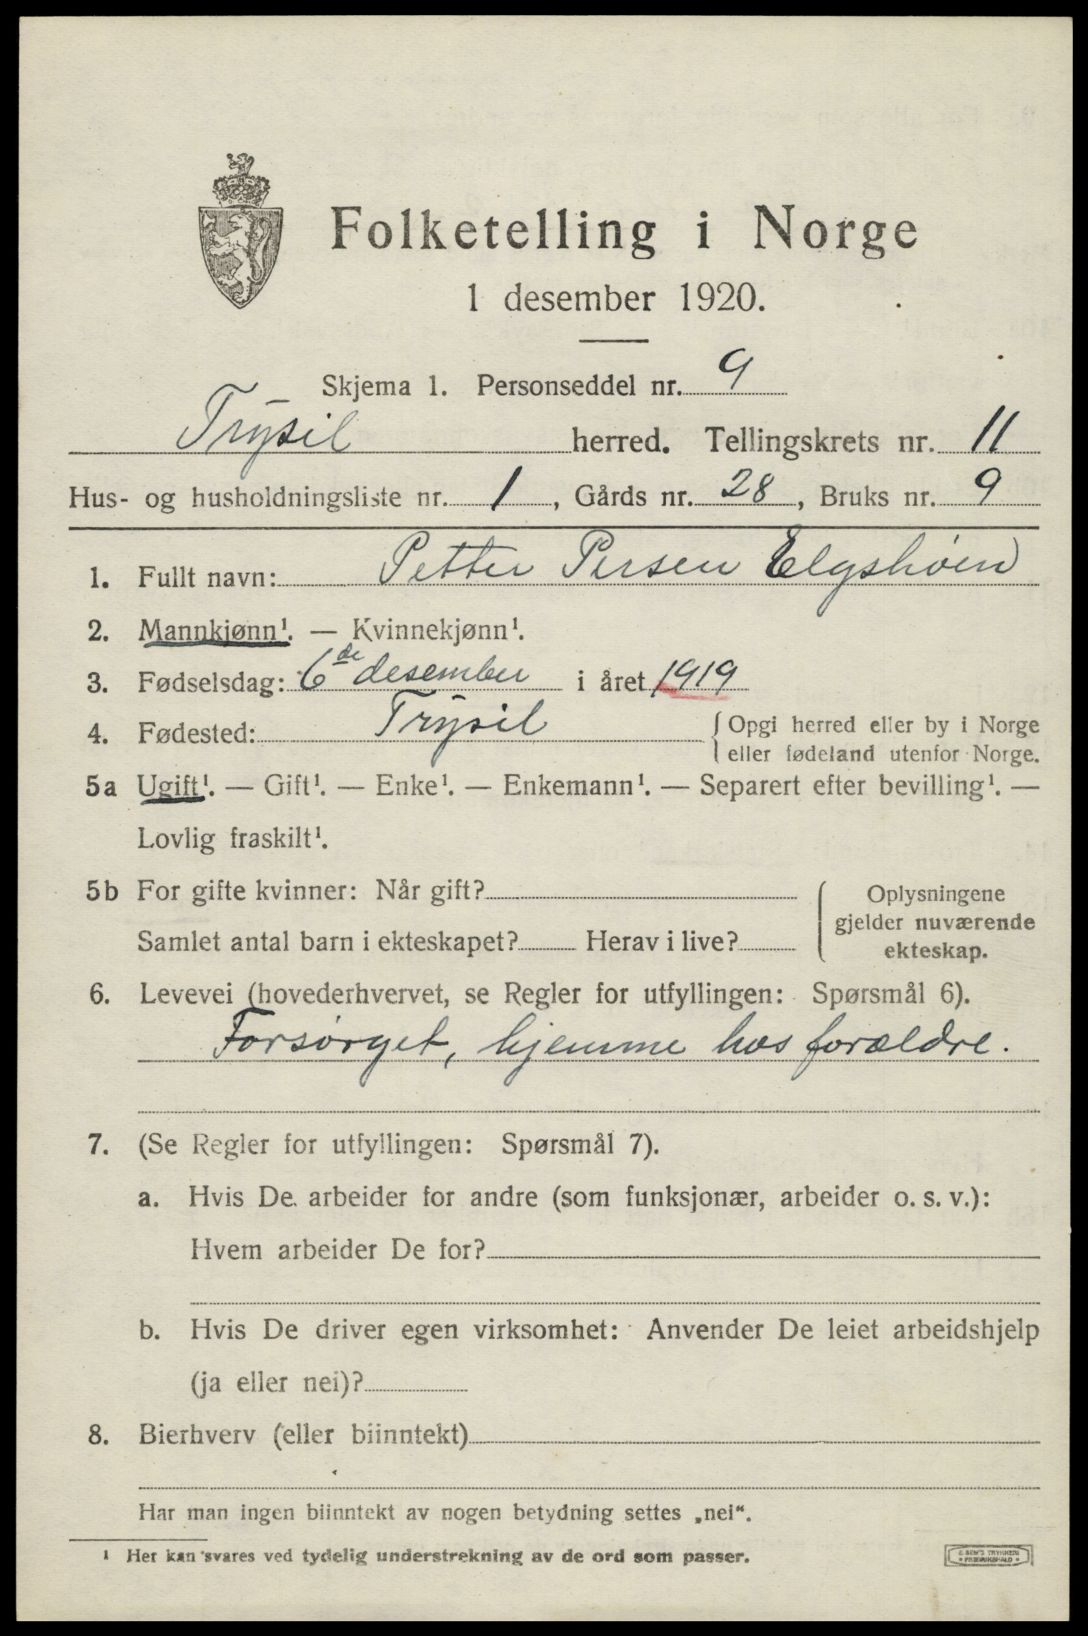 Folketelling i Norge
1 desember 1920.
Skjema 1. Personseddel nr. 9
Trysil herred. Tellingskrets nr. 11
Hus- og husholdningsliste nr. 1, Gårds nr. 28, Bruks nr. 9
1. Fullt navn: Petter Persen Elgshøen
2. Mannkjønn¹. — Kvinnekjønn¹.
3. Fødselsdag: 6de desember i året 1919
4. Fødested: Trysil { Opgi herred eller by i Norge
eller fødeland utenfor Norge.
5a Ugift¹. — Gift¹. — Enke¹. — Enkemann¹. — Separert efter bevilling¹. —
Lovlig fraskilt¹.
5b For gifte kvinner: Når gift?
Samlet antal barn i ekteskapet? Herav i live?
{ Oplysningene
gjelder nuværende
ekteskap.
6. Levevei (hovederhvervet, se Regler for utfyllingen: Spørsmål 6).
Forsørget, hjemme hos forældre.
7. (Se Regler for utfyllingen: Spørsmål 7).
a. Hvis De arbeider for andre (som funksjonær, arbeider o. s. v.):
Hvem arbeider De for?
b. Hvis De driver egen virksomhet: Anvender De leiet arbeidshjelp
(ja eller nei)?
8. Bierhverv (eller biinntekt)
Har man ingen biinntekt av nogen betydning settes „nei“.
¹ Her kan svares ved tydelig understrekning av de ord som passer.